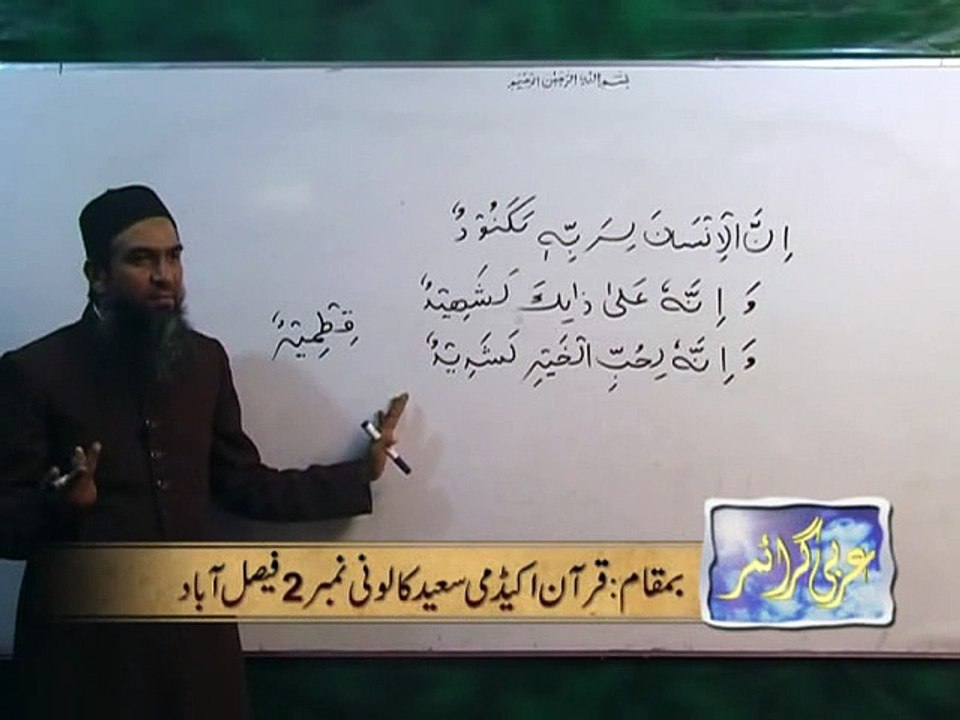 بسم اللہ الرحمٰن الرحیم
اِنَّ الْاِنْسَانَ لِرَبِّهٖ لَكَنُوْدٌ
وَ اِنَّهٗ عَلىٰ ذٰلِكَ لَشَهِيْدٌ
وَ اِنَّهٗ لِحُبِّ الْخَيْرِ لَشَدِيْدٌ
بمقام: قرآن اکیڈمی سعید کالونی نمبر 2 فیصل آباد
عربی گرائمر